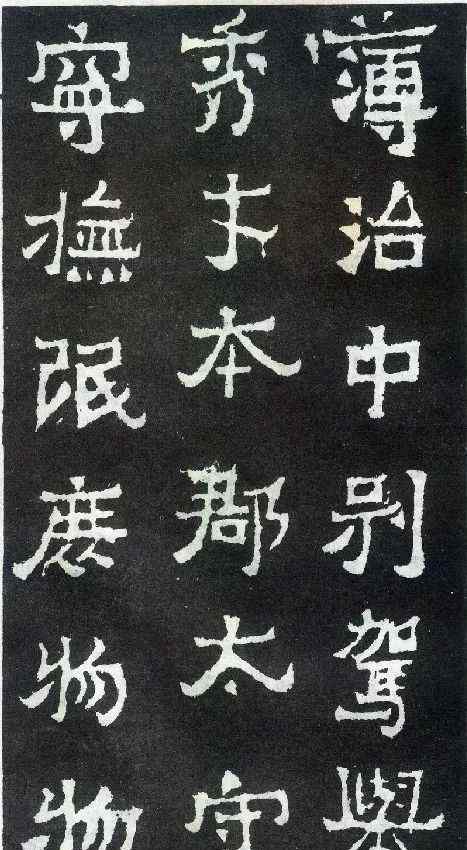 薄治中別駕舉
秀才本郡太守
寧撫氓庶物物